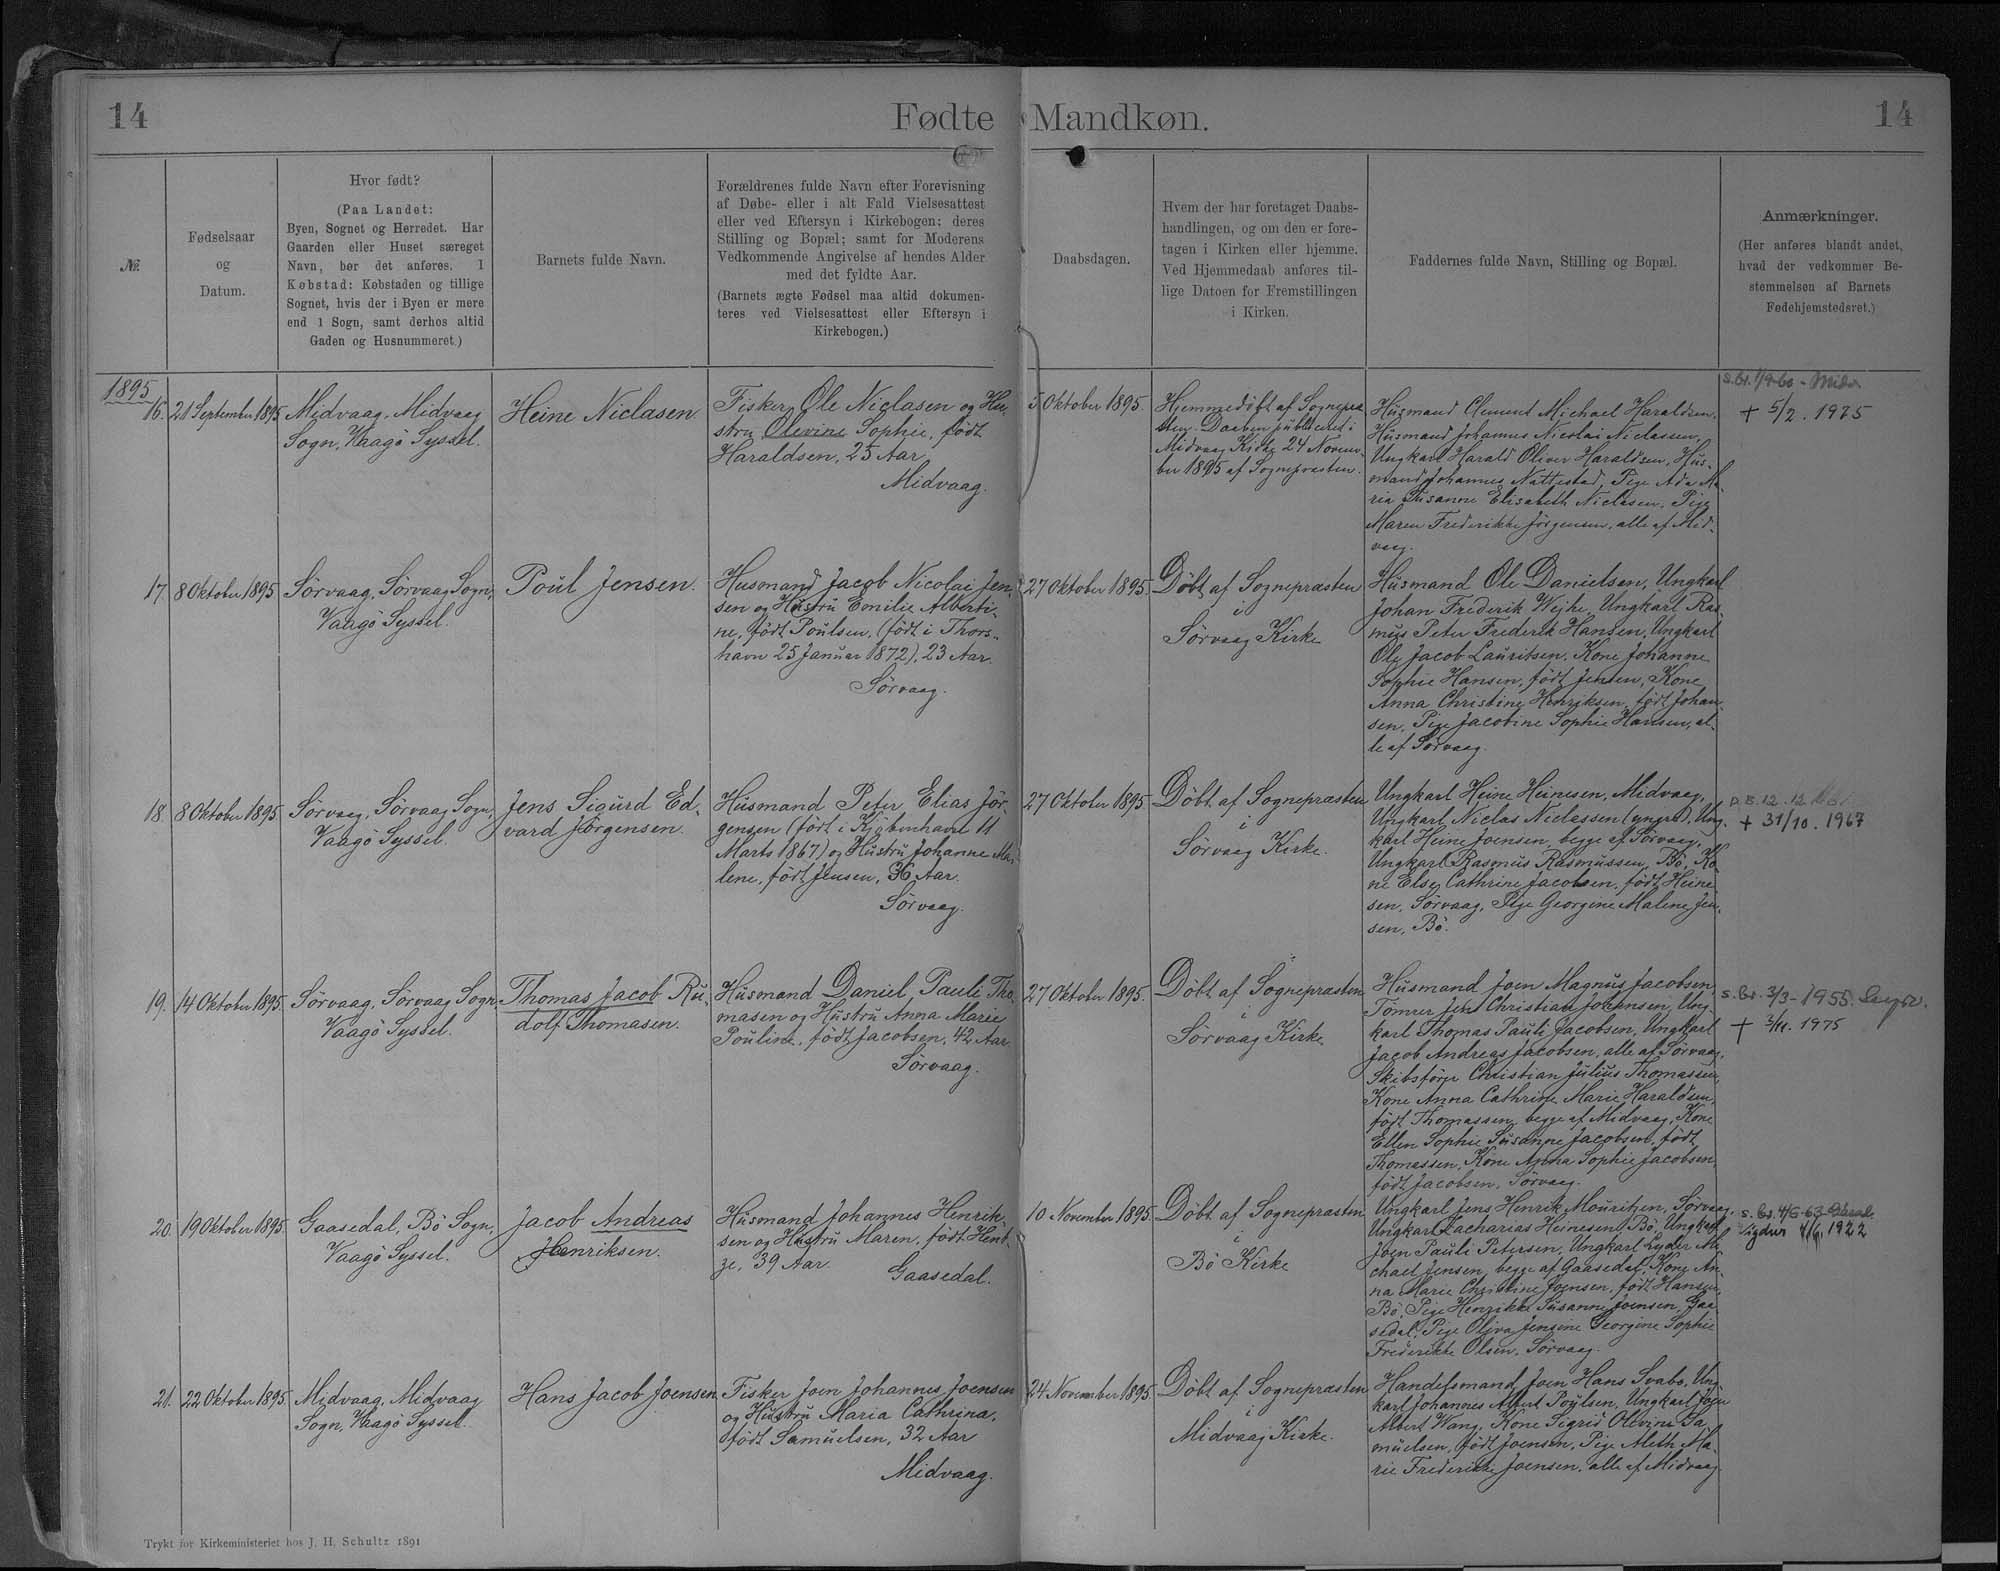 14
Fødte
Mandkøn.
14
№
Fødselsaar
og
Datum.
Hvor født?
(Paa Landet:
Byen, Sognet og Herredet. Har
Gaarden eller Huset særeget
Navn, bør det anføres. I
Købstad: Købstaden og tillige
Sognet, hvis der i Byen er mere
end 1 Sogn, samt derhos altid
Gaden og Husnummeret.)
Barnets fulde Navn.
Forældrenes fulde Navn efter Forevisning
af Døbe- eller i alt Fald Vielsesattest
eller ved Eftersyn i Kirkebogen; deres
Stilling og Bopæl; samt for Moderens
Vedkommende Angivelse af hendes Alder
med det fyldte Aar.
(Barnets ægte Fødsel maa altid dokumen-
teres ved Vielsesattest eller Eftersyn i
Kirkebogen.)
Daabsdagen.
Hvem der har foretaget Daabs-
handlingen, og om den er fore-
tagen i Kirken eller hjemme.
Ved Hjemmedaab anføres til-
lige Datoen for Fremstillingen
i Kirken.
Faddernes fulde Navn, Stilling og Bopæl.
Anmærkninger.
(Her anføres blandt andet,
hvad der vedkommer Be-
stemmelsen af Barnets
Fødehjemstedsret.)
1895
16.
21 September 1895
Midvaag, Midvaag
Sogn, Vaagø Syssel.
Heine Niclasen.
Fisker Ole Niclasen og Hu-
stru Olevine Sophie, født
Haraldsen, 25 Aar
Midvaag.
5 Oktober 1895.
Hjemmedøbt af Sognepræ
sten. Daaben publiceret i
Midvaag Kirke 24 Novem-
ber 1895 af Sognepræsten.
Husmand Clement Michael Haraldsen,
Husmand Johannes Nicolai Niclassen,
Ungkarl Harald Oliver Haraldsen, Hus-
mand Johannes Nattestad, Pige Ada Ma-
ria Susanne Elisabeth Niclasen, Pige
Maren Frederikke Jørgensen, alle af Mid-
vaag.
+ 5/2. 1975
17.
8 Oktober 1895
Sørvaag, Sørvaag Sogn,
Vaagø Syssel.
Poul Jensen.
Husmand Jacob Nicolai Jen-
sen og Hustru Emilie Alberti-
ne, født Poulsen, (født i Thors-
havn 25 Januar 1872), 23 Aar.
Sørvaag.
27 Oktober 1895.
Døbt af Sognepræsten
i
Sørvaag Kirke
Husmand Ole Danielsen, Ungkarl
Johan Frederik Wejhe, Ungkarl Ras-
mus Peter Frederik Hansen, Ungkarl
Ole Jacob Lauritsen, Kone Johanne
Sophie Hansen, født Jensen, Kone
Anna Christine Henriksen, født Johan-
sen, Pige Jacobine Sophie Hansen, al-
le af Sørvaag.
18.
8 Oktober 1895.
Sørvaag, Sørvaag Sogn,
Vaagø Syssel.
Jens Sigurd Ed-
vard Jørgensen.
Husmand Peter Elias Jør-
gensen (født i Kjøbenhavn 11
Marts 1867) og Hustru Johanne Ma-
lene, født Jensen, 36 Aar.
Sørvaag.
27 Oktober 1895.
Døbt af Sognepræsten
i
Sørvaag Kirke.
Ungkarl Heine Heinesen, Midvaag,
Ungkarl Niclas Niclassen (yngre), Ung-
karl Heine Joensen, begge af Sørvaag,
Ungkarl Rasmus Rasmussen, Bø, Ko-
ne Elsy Cathrine Jacobsen, født Heine-
sen, Sørvaag, Pige Georgine Malene Jen-
sen, Bø.
+ 31/10. 1967
19.
14 Oktober 1895.
Sørvaag, Sørvaag Sogn,
Vaagø Syssel.
Thomas Jacob Ru-
dolf Thomasen.
Husmand Daniel Pauli Tho-
masen og Hustru Anna Marie
Pouline, født Jacobsen, 42 Aar.
Sørvaag.
27 Oktober 1895.
Døbt af Sognepræsten
i
Sørvaag Kirke.
Husmand Joen Magnus Jacobsen,
Tømrer Jens Christian Johansen, Ung-
karl Thomas Pauli Jacobsen, Ungkarl
Jacob Andreas Jacobsen, alle af Sørvaag,
Skibsfører Christian Julius Thomassen,
Kone Anna Cathrine Marie Haraldsen,
født Thomassen, begge af Midvaag, Kone
Ellen Sophie Susanne Jacobsen, født
Thomassen, Kone Anna Sophie Jacobsen,
født Jacobsen, Sørvaag.
s. br. 3/3-1955.
+ 3/11. 1975
20.
19 Oktober 1895.
Gaasedal, Bø Sogn,
Vaagø Syssel.
Jacob Andreas
Henriksen.
Husmand Johannes Henrik-
sen og Hustru Maren, født Hent-
ze, 39 Aar.
Gaasedal.
10 November 1895.
Døbt af Sognepræsten
i
Bø Kirke
Ungkarl Jens Henrik Mouritzen, Sørvaag,
Ungkarl Zacharias Heinesen, Bø, Ungkarl
Joen Pauli Petersen, Ungkarl Lyder Mi-
chael Jensen, begge af Gaasedal, Kone An-
na Marie Christine Joensen, født Hansen,
Bø, Pige Henrikke Susanne Joensen, Gaa-
sedal, Pige Oliva Jensine Georgine Sophie
Frederikke Olsen, Sørvaag.
1922
21.
22 Oktober 1895.
Midvaag, Midvaag
Sogn, Vaagø Syssel.
Hans Jacob Joensen
Fisker Joen Johannes Joensen
og Hustru Maria Cathrina,
født Samuelsen, 32 Aar
Midvaag.
24 November 1895
Døbt af Sognepræsten
i
Midvaag Kirke.
Handelsmand Joen Hans Svabo, Ung-
karl Johannes Albert Poulsen, Ungkarl
Albert Wang, Kone Sigrid Olevine Sa-
muelsen, født Joensen, Pige Aleth Ma-
rie Frederikke Joensen, alle af Midvaag
Trykt for Kirkeministeriet hos J. H. Schultz 1891